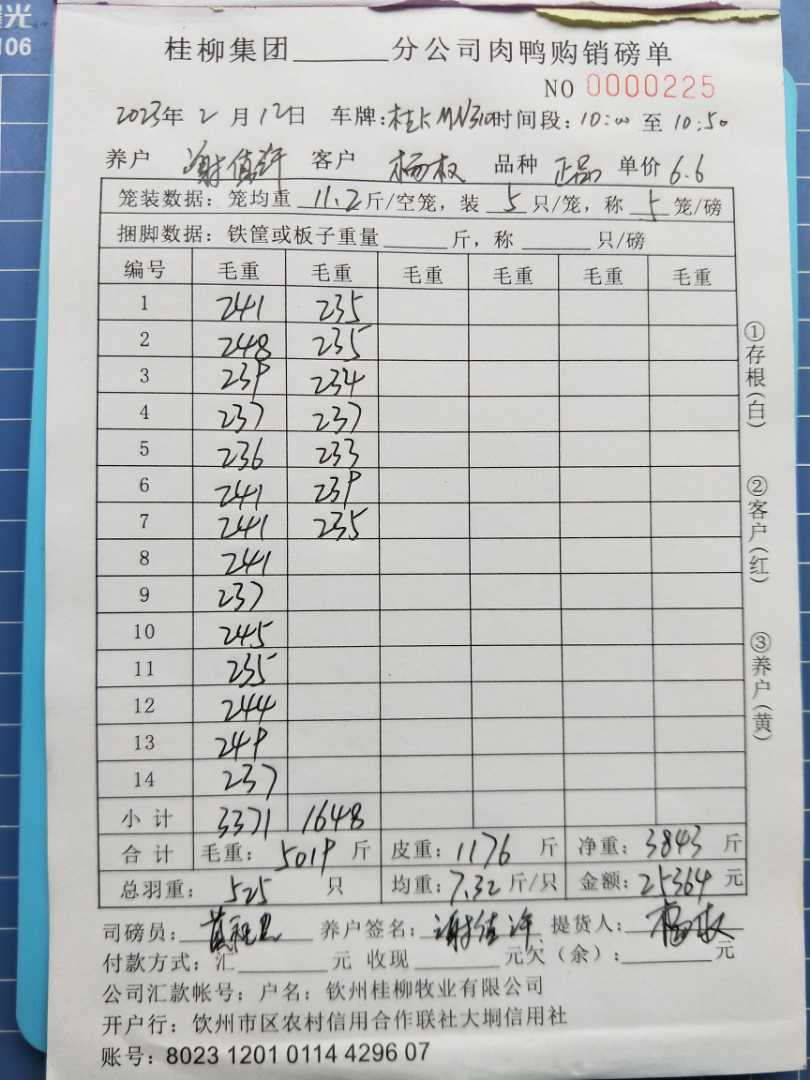 光
106
桂柳集团______分公司肉鸭购销磅单
NO 0000225
2023年2月12日 车牌:桂K MN310时间段:10:00至10:50
养户 谢值许 客户 杨权 品种 正品 单价6.6
笼装数据:笼均重 11.2斤/空笼,装 5 只/笼,称 5 笼/磅
捆脚数据:铁筐或板子重量______斤,称______只/磅
编号 毛重 毛重 毛重 毛重 毛重 毛重
1 241 235
2 248 235
3 239 234
4 237 237
5 236 233
6 241 239
7 241 235
8 241
9 237
10 245
11 235
12 244
13 249
14 237
小计 3371 1648
合计 毛重:5019斤 皮重:1176斤 净重:3843斤
总羽重:525只 均重:7.32斤/只 金额:25364元
司磅员: 养户签名:谢值许 提货人:杨权
付款方式:汇______元 收现______元欠(余):______元
公司汇款帐号:户名:钦州桂柳牧业有限公司
开户行:饮州市区农村信用合作联社大垌信用社
账号:8023 1201 0114 4296 07
①存根(白)
②客户(红)
③养户(黄)